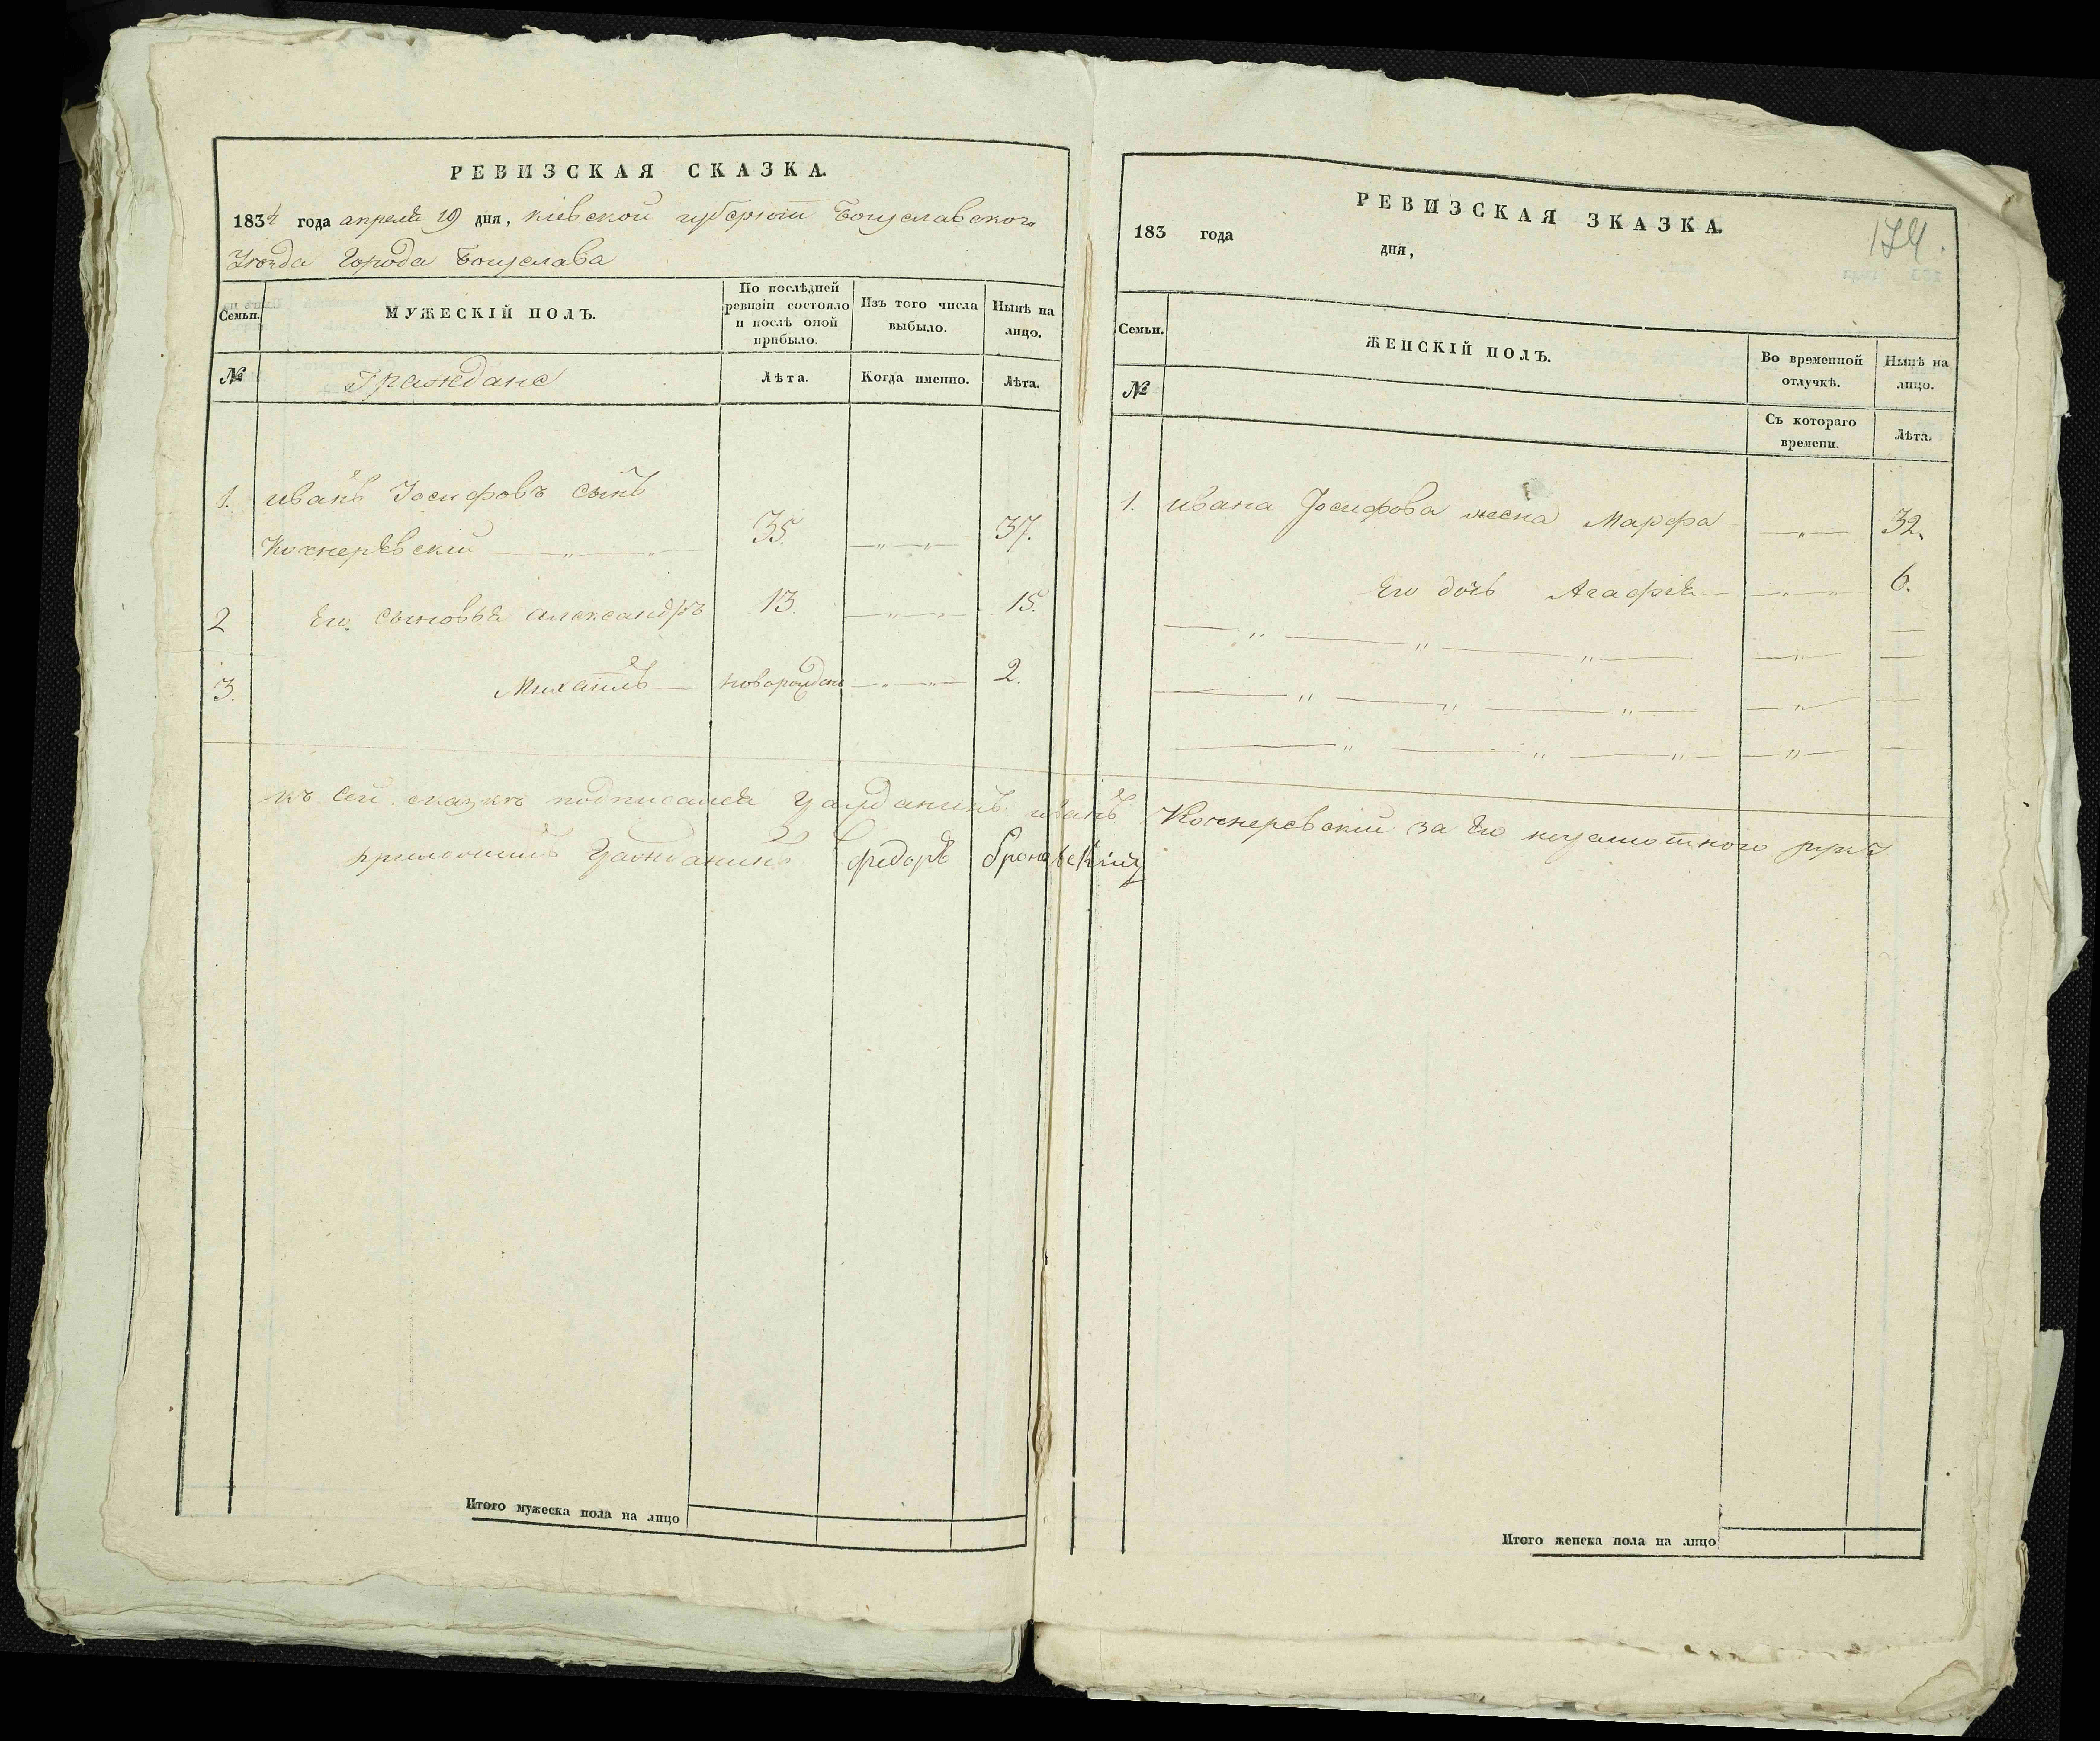 РЕВИЗСКАЯ СКАЗКА.
1834 года апреля 19 дня, Кіевской губерніи Богуславского
Уезда Города Богуслава
Семьи.
МУЖЕСКІЙ ПОЛЪ.
По послѣдней ревизіи состояло и послѣ оной прибыло.
Изъ того числа выбыло.
Нынѣ на лицо.
№
Граждане
Лѣта.
Когда именно.
Лѣта.
1. Иванъ Іосифовъ сынъ
35. 37.
2 Его сыновья Александръ 13. 15.
3. Михаилъ новорожденъ 2.
къ сей сказкѣ подписался гражданинъ Иванъ
гражданинъ Федоръ
Итого мужеска пола на лицо
РЕВИЗСКАЯ ЗКАЗКА.
174.
183 года дня,
Семьи.
ЖЕНСКІЙ ПОЛЪ.
Во временной отлучкѣ.
Нынѣ на лицо.
№
Съ котораго времени.
Лѣта.
1. Ивана Іосифова жена Марфа 32.
Его дочь Агафія 6.
за его неграмотного руку
Итого женска пола на лицо